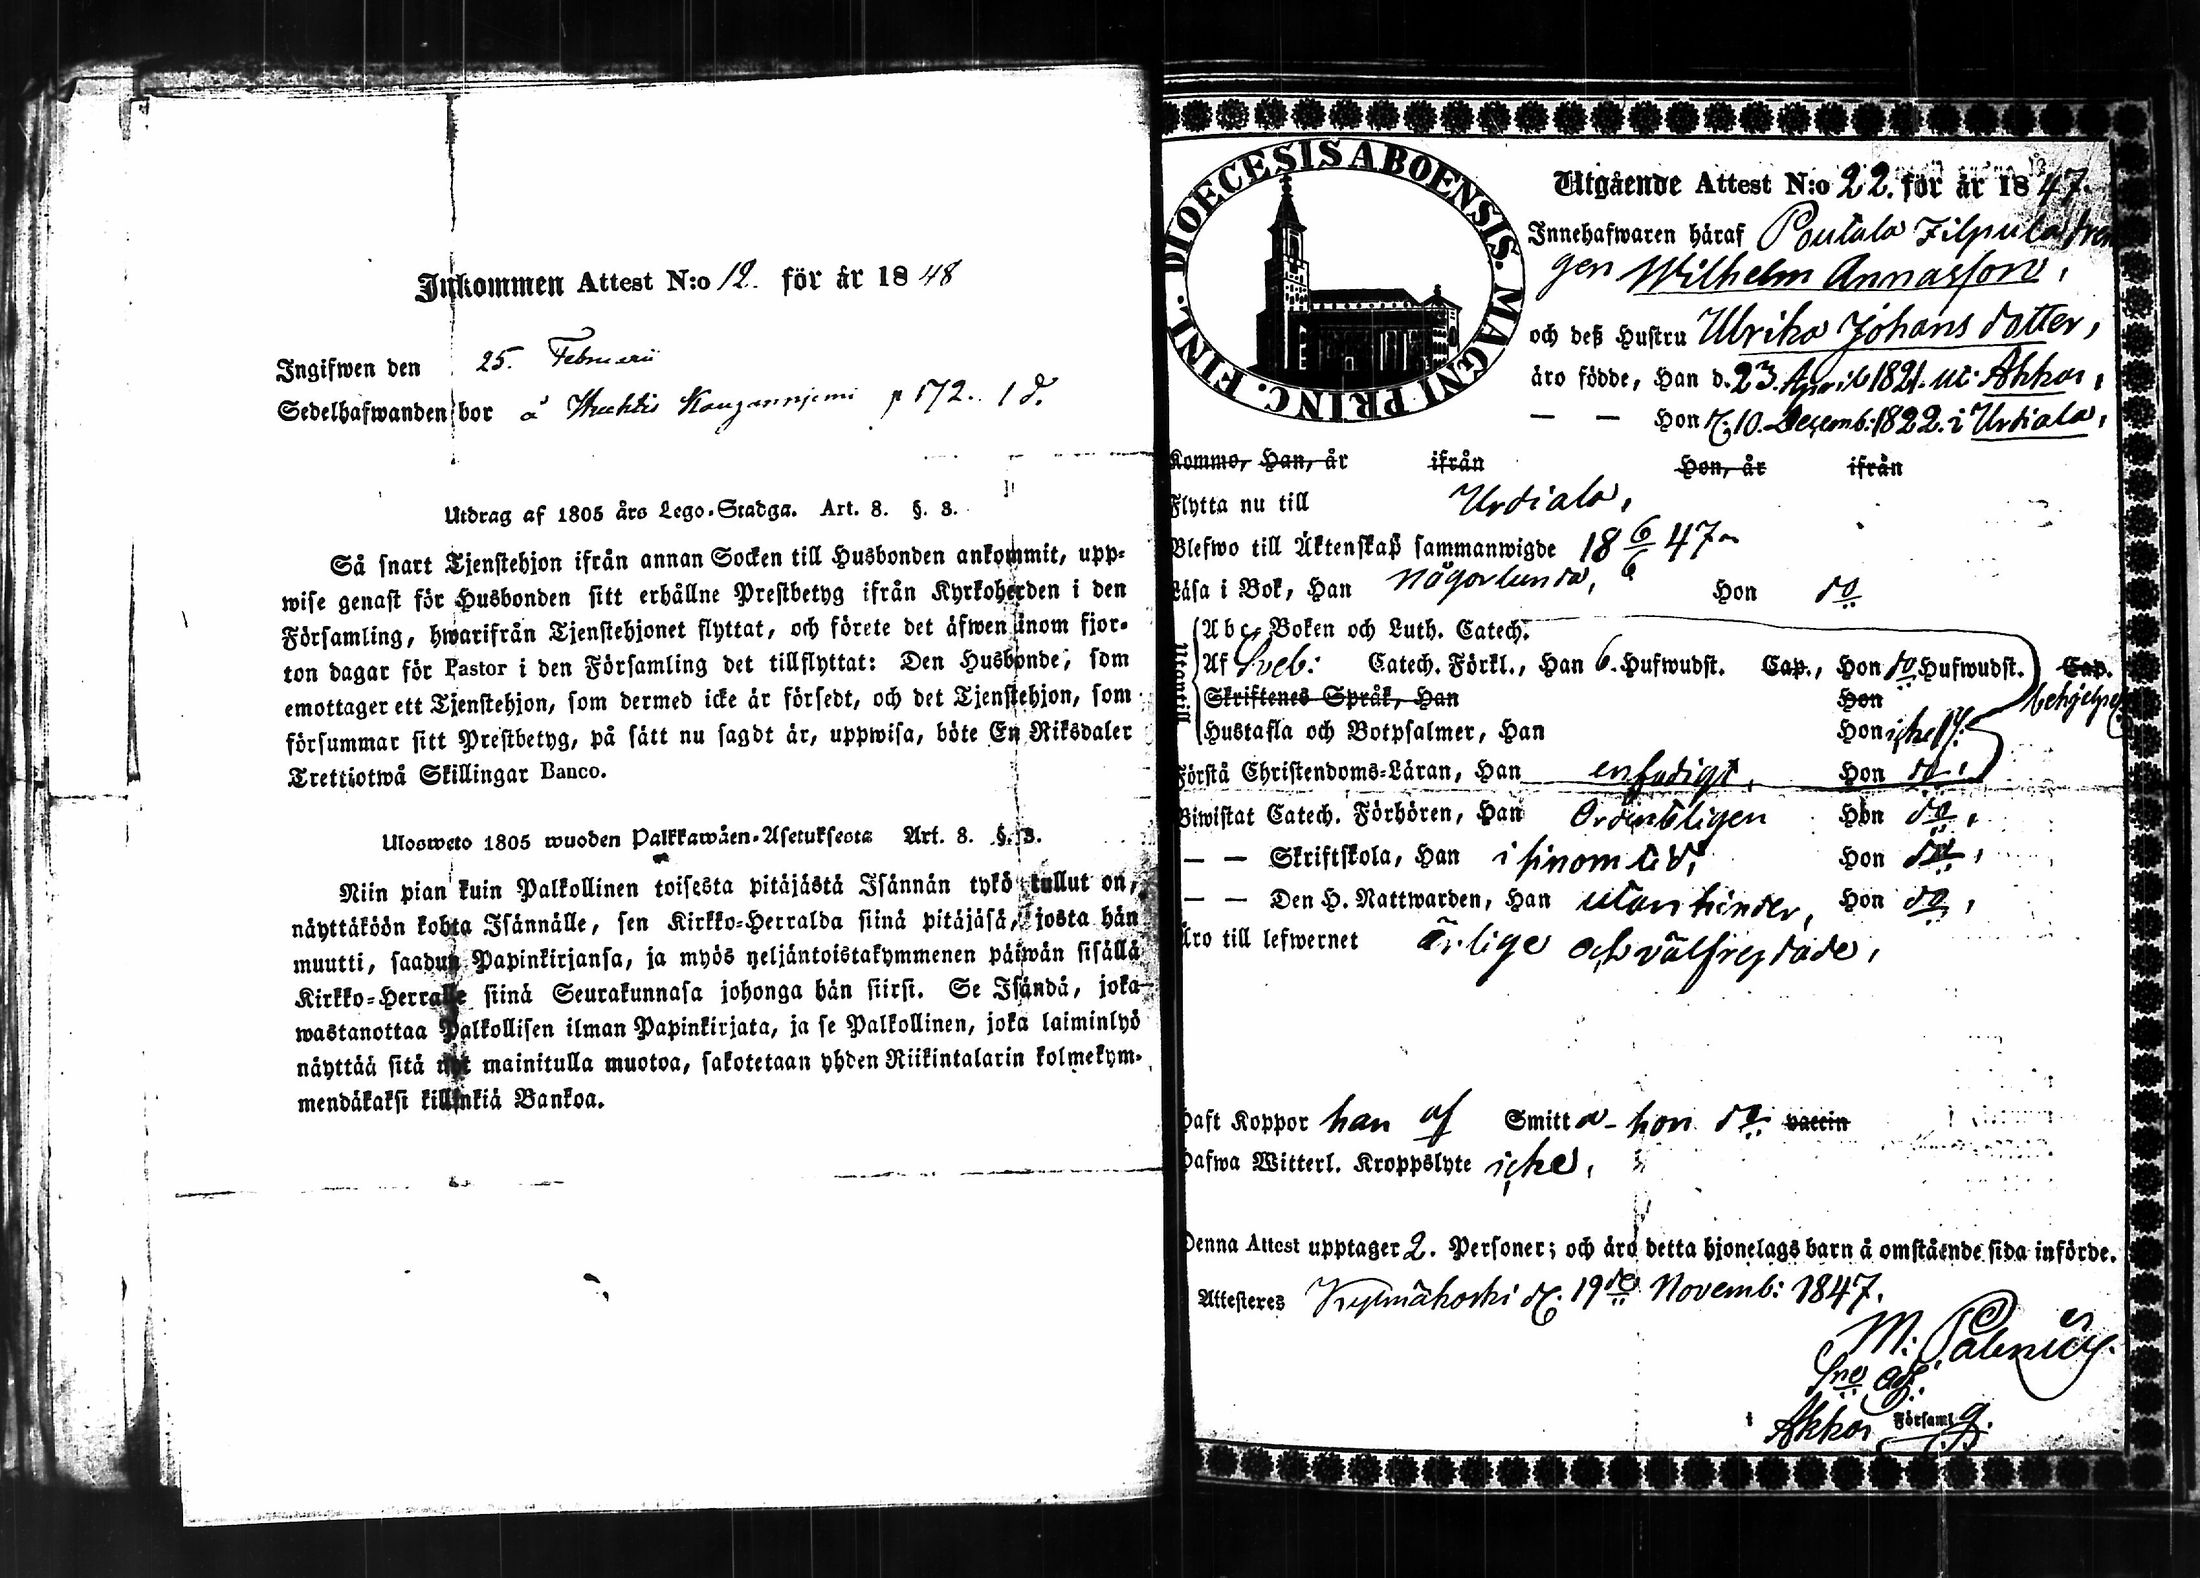 Inkommen Attest N:o 12. för år 1848
Ingifwen den 25. Februarii
Sedelhafwanden bor å p 172. 1 d.
Utdrag af 1805 års Lego-Stadga. Art. 8. §. 3.
Så snart Tjenstehjon ifrån annan Socken till Husbonden ankommit, upp-
wise genast för Husbonden sitt erhållne Prestbetyg ifrån Kyrkoherden i den
Församling, hwarifrån Tjenstehjonet flyttat, och förete det äfwen inom fjor-
ton dagar för Pastor i den Församling det tillflyttat: Den Husbonde, som
emottager ett Tjenstehjon, som dermed icke är försedt, och det Tjenstehjon, som
försummar sitt Prestbetyg, på sätt nu sagdt är, uppwisa, böte En Riksdaler
Trettiotwå Skillingar Banco.
Ulosweto 1805 wuoden Palkkawäen-Asetuksesta Art. 8. §. 3.
Niin pian kuin Palkollinen toisesta pitäjästä Isännän tykö tullut on,
näyttäköön kohta Isännälle, sen Kirkko-Herralda siinä pitäjäsä, josta hän
muutti, saadun Papinkirjansa, ja myös neljäntoistakymmenen päiwän sisällä
Kirkko-Herralle siinä Seurakunnasa johonga hän siirsi. Se Isändä, joka
wastanottaa Palkollisen ilman Papinkirjata, ja se Palkollinen, joka laiminlyö
näyttää sitä nyt mainitulla muotoa, sakotetaan yhden Riikintalarin kolmekym-
mendäkaksi killinkiä Bankoa.
DIOECESIS ABOENSIS. MAGNI PRINC. FINL.
Utgående Attest N:o 22. för år 1847.
Innehafwaren häraf Poutala Filpula dren
gen Wilhelm Annasson,
och deß Hustru Ulrika Johans dotter,
äro födde, Han d. 23. April 1821. uti Akkas,
— — Hon d. 10. Decemb: 1822. i Urdiala,
Komma, Han, år ifrån Hon, år ifrån
Flytta nu till Urdiala,
Blefwo till Äktenskap sammanwigde 18 6/6 47.
Läsa i Bok, Han någorlunda, Hon do
Utantill
Abc-Boken och Luth. Catech.
Af Sveb: Catech. Förkl., Han 6. Hufwudst. Cap., Hon do Hufwudst. Cap.
Skriftenes Språk, Han Hon behjelpeligt
Hustafla och Botpsalmer, Han Hon icke
Förstå Christendoms-Läran, Han enfadigt, Hon do,
Biwistat Catech. Förhören, Han Ordentligen Hon do,
— — Skriftskola, Han i sinom tid, Hon do,
— — Den H. Nattwarden, Han utan hinder, Hon do,
Äro till lefwernet ärlige och välfrejdade,
Haft Koppor han af Smitta - hon do vaccin
Hafwa Witterl. Kroppslyte icke,
Denna Attest upptager 2. Personer; och äro detta hjonelags barn å omstående sida införde.
Attesteres Kylmäkoski d. 19de Novemb: 1847.
M:
Sno adj:
i Akkas Församlg.